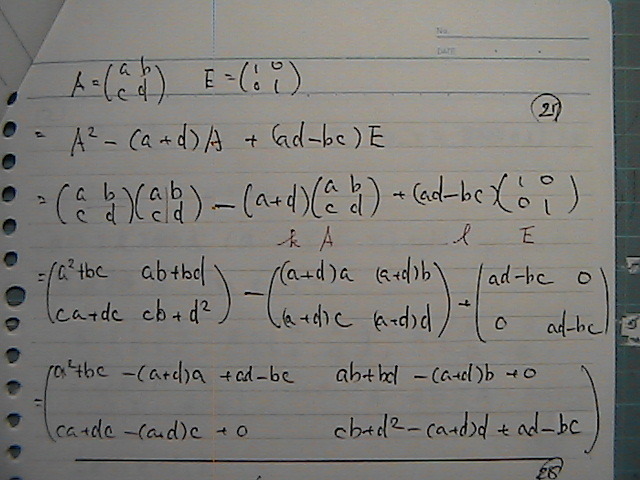 No.
DATE
A = (a b
c d) E = (1 0
0 1)
= A² - (a+d)A + (ad-bc)E
= (a b
c d)(a b
c d) - (a+d)(a b
c d) + (ad-bc)(1 0
0 1)
k A l E
= (a²+bc ab+bd
ca+dc cb+d²) - ((a+d)a (a+d)b
(a+d)c (a+d)d) + (ad-bc 0
0 ad-bc)
= (a²+bc -(a+d)a +ad-bc ab+bd -(a+d)b +0
ca+dc -(a+d)c +0 cb+d² -(a+d)d + ad-bc)